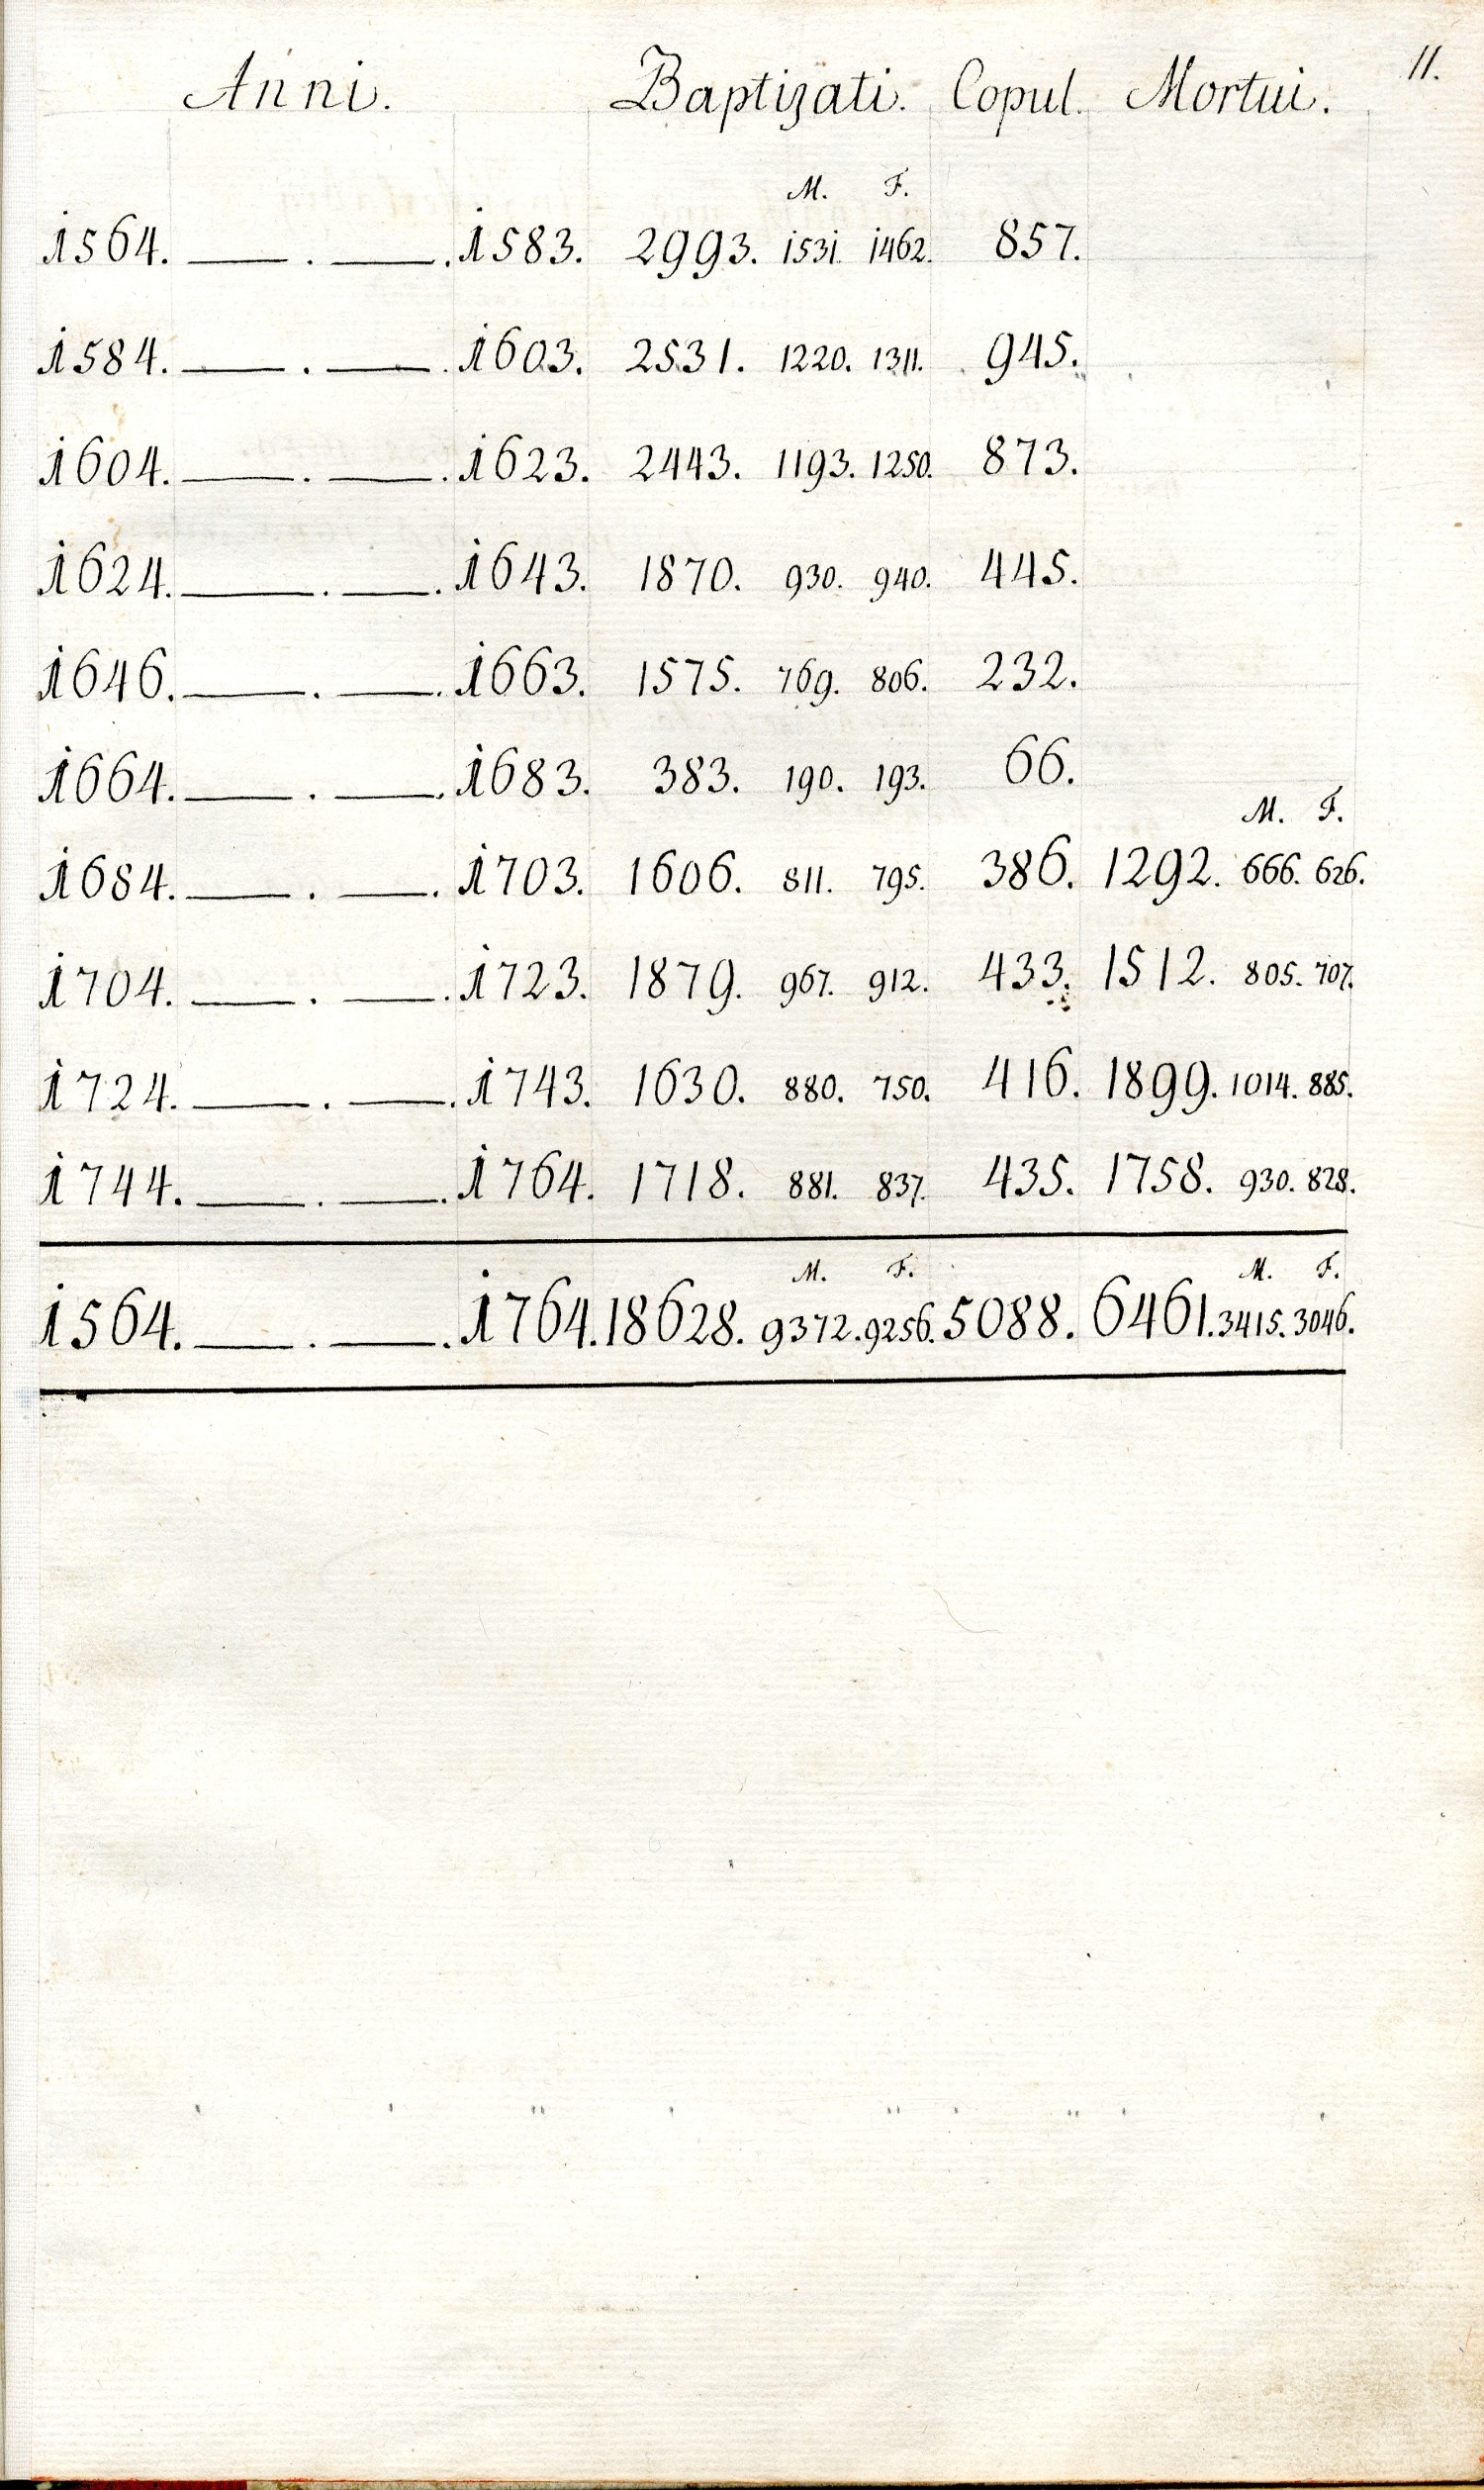 11.
Anni. Baptizati. Copul. Mortui.
M. F.
1564. — . — . 1583. 2993. 1531. 1462. 857.
1584. — . — . 1603. 2531. 1220. 1311. 945.
1604. — . — . 1623. 2443. 1193. 1250. 873.
1624. — . — . 1643. 1870. 930. 940. 445.
1646. — . — . 1663. 1575. 769. 806. 232.
1664. — . — . 1683. 383. 190. 193. 66.
M. F.
1684. — . — . 1703. 1606. 811. 795. 386. 1292. 666. 626.
1704. — . — . 1723. 1879. 967. 912. 433. 1512. 805. 707.
1724. — . — . 1743. 1630. 880. 750. 416. 1899. 1014. 885.
1744. — . — . 1764. 1718. 881. 837. 435. 1758. 930. 828.
M. F. M. F.
1564. — . — . 1764. 18628. 9372. 9256. 5088. 6461. 3415. 3046.